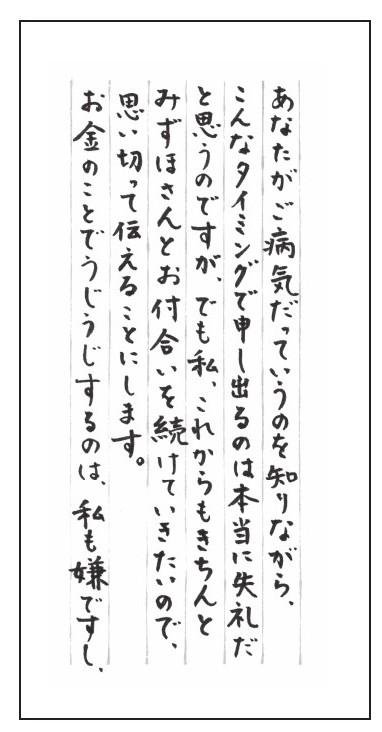 あなたがご病気だっていうのを知りながら、
こんなタイミングで申し出るのは本当に失礼だ
と思うのですが、でも私、これからもきちんと
みずほさんとお付合いを続けていきたいので、
思い切って伝えることにします。
お金のことでうじうじするのは、私も嫌ですし、